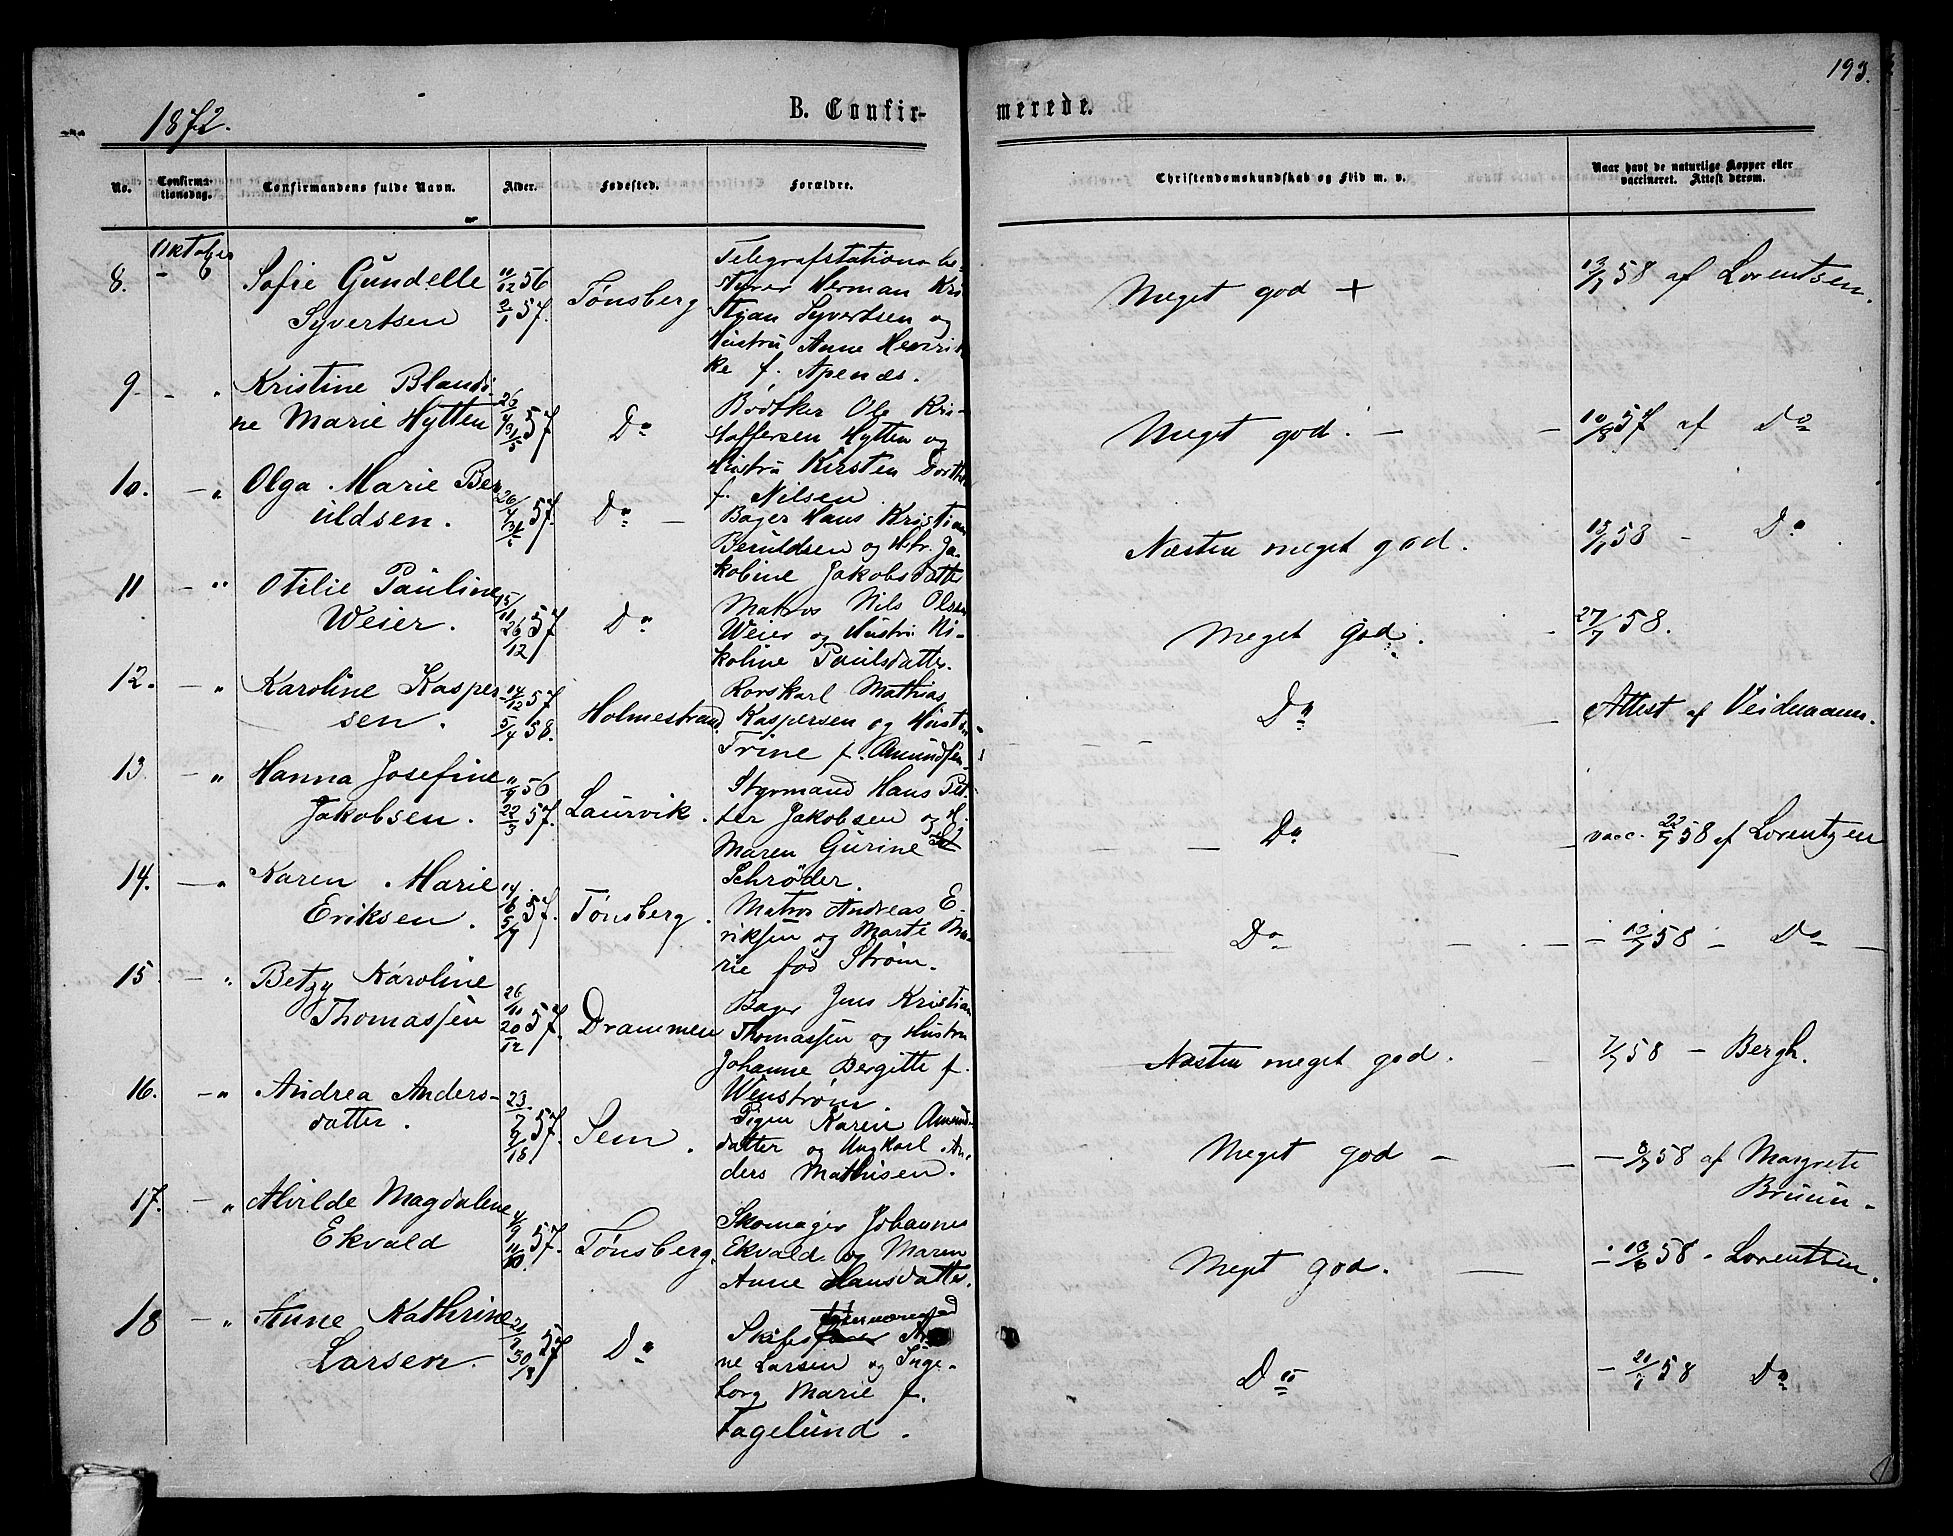 193.
1872.
B. Confir-
merede.
No.
Confirma-
tionsdag.
Confirmandens fulde Navn.
Alder.
Fødested.
Forældre.
Christendomskundskab og Flid m. v.
Naar havt de naturlige Kopper eller
vaccineret. Attest derom.
8.
Oktober
6
Sofie Gundelle
Syvertsen
11/12 56
2/1 57.
Tønsberg
Telegrafstations be-
styrer Herman Kri
stjan Syvertsen og
Hustru Anne Henrik
ke f. Apenæs.
Meget god +
58 af Lorentsen.
9 - "
Kristine Blandi-
ne Marie Hytten
26/4 57
31/5
Do
Bødtker Ole Kri-
stoffersen Hytten og
Hustru Kirsten Dorthe
f. Nilsen
Meget god. - -
57 af Do
10. - "
Olga Marie Ber
uldsen.
26/4 57.
31/5
Do -
Bager Hans Kristian
Beruldsen og Hstr. Ja-
kobine Jakobsdatter
Næsten meget god.
58 - Do
11 - "
Otilie Pauline
Weier.
15/11 57
26/12
Do
Matros Nils Olsen
Weier og Hustru Ni-
koline Paulsdatter.
Meget god. -
27/7 58.
12. - "
Karoline Kasper
sen.
14/12 57
5/4 58.
Holmestrand.
Rorskarl Mathias
Kaspersen og Hustru
Trine f. Amundsen
Do
Attest af Veidemann.
13. - "
Hanna Josefine
Jakobsen.
56
22/3 57.
Laurvik.
Styrmand Hans Pet-
ter Jakobsen og H.
Maren Gurine
Schrøder.
- Do -
vacc. 22/7 58 af Lorentzen
14. - "
Karen Marie
Eriksen.
14/6 57.
5/7
Tønsberg.
Matros Andreas E-
riksen og Marte Ma-
rie fød Strøm.
Do - -
- 13/7 58 - Do -
15 - "
Betzy Karoline
Thomassen
26/11 57.
20/12
Drammen
Bager Jens Kristian
Thomassen og Hustru
Johanne Bergitte f.
Wenstrøm.
Næsten meget god. -
7/7 58 - Bergh.
16. - "
Andrea Anders-
datter.
23/7 57.
Sem.
Pigen Karen Amund
datter og Ungkarl An-
ders Mathisen.
Meget god - -
58 af Margrete
Bruun -
17. - "
Alvilde Magdalene
Ekvald
4/9 57.
11/10
Tønsberg.
Skomager Johannes
Ekvald og Maren
Anne Hansdatter.
Meget god. -
58 - Lorentsen.
18 - "
Anne Kathrine
Larsen -
57
Do
Tømmermand
Skibs
ne Larsen og Inge-
borg Marie f.
Fagelund.
Do
- 58 Do